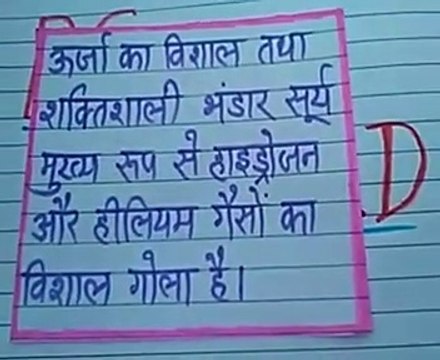 ऊर्जा का विशाल तथा
शक्तिशाली भंडार सूर्य
मुख्य रूप से हाइड्रोजन
और हीलियम गैसों का
विशाल गोला है।
D